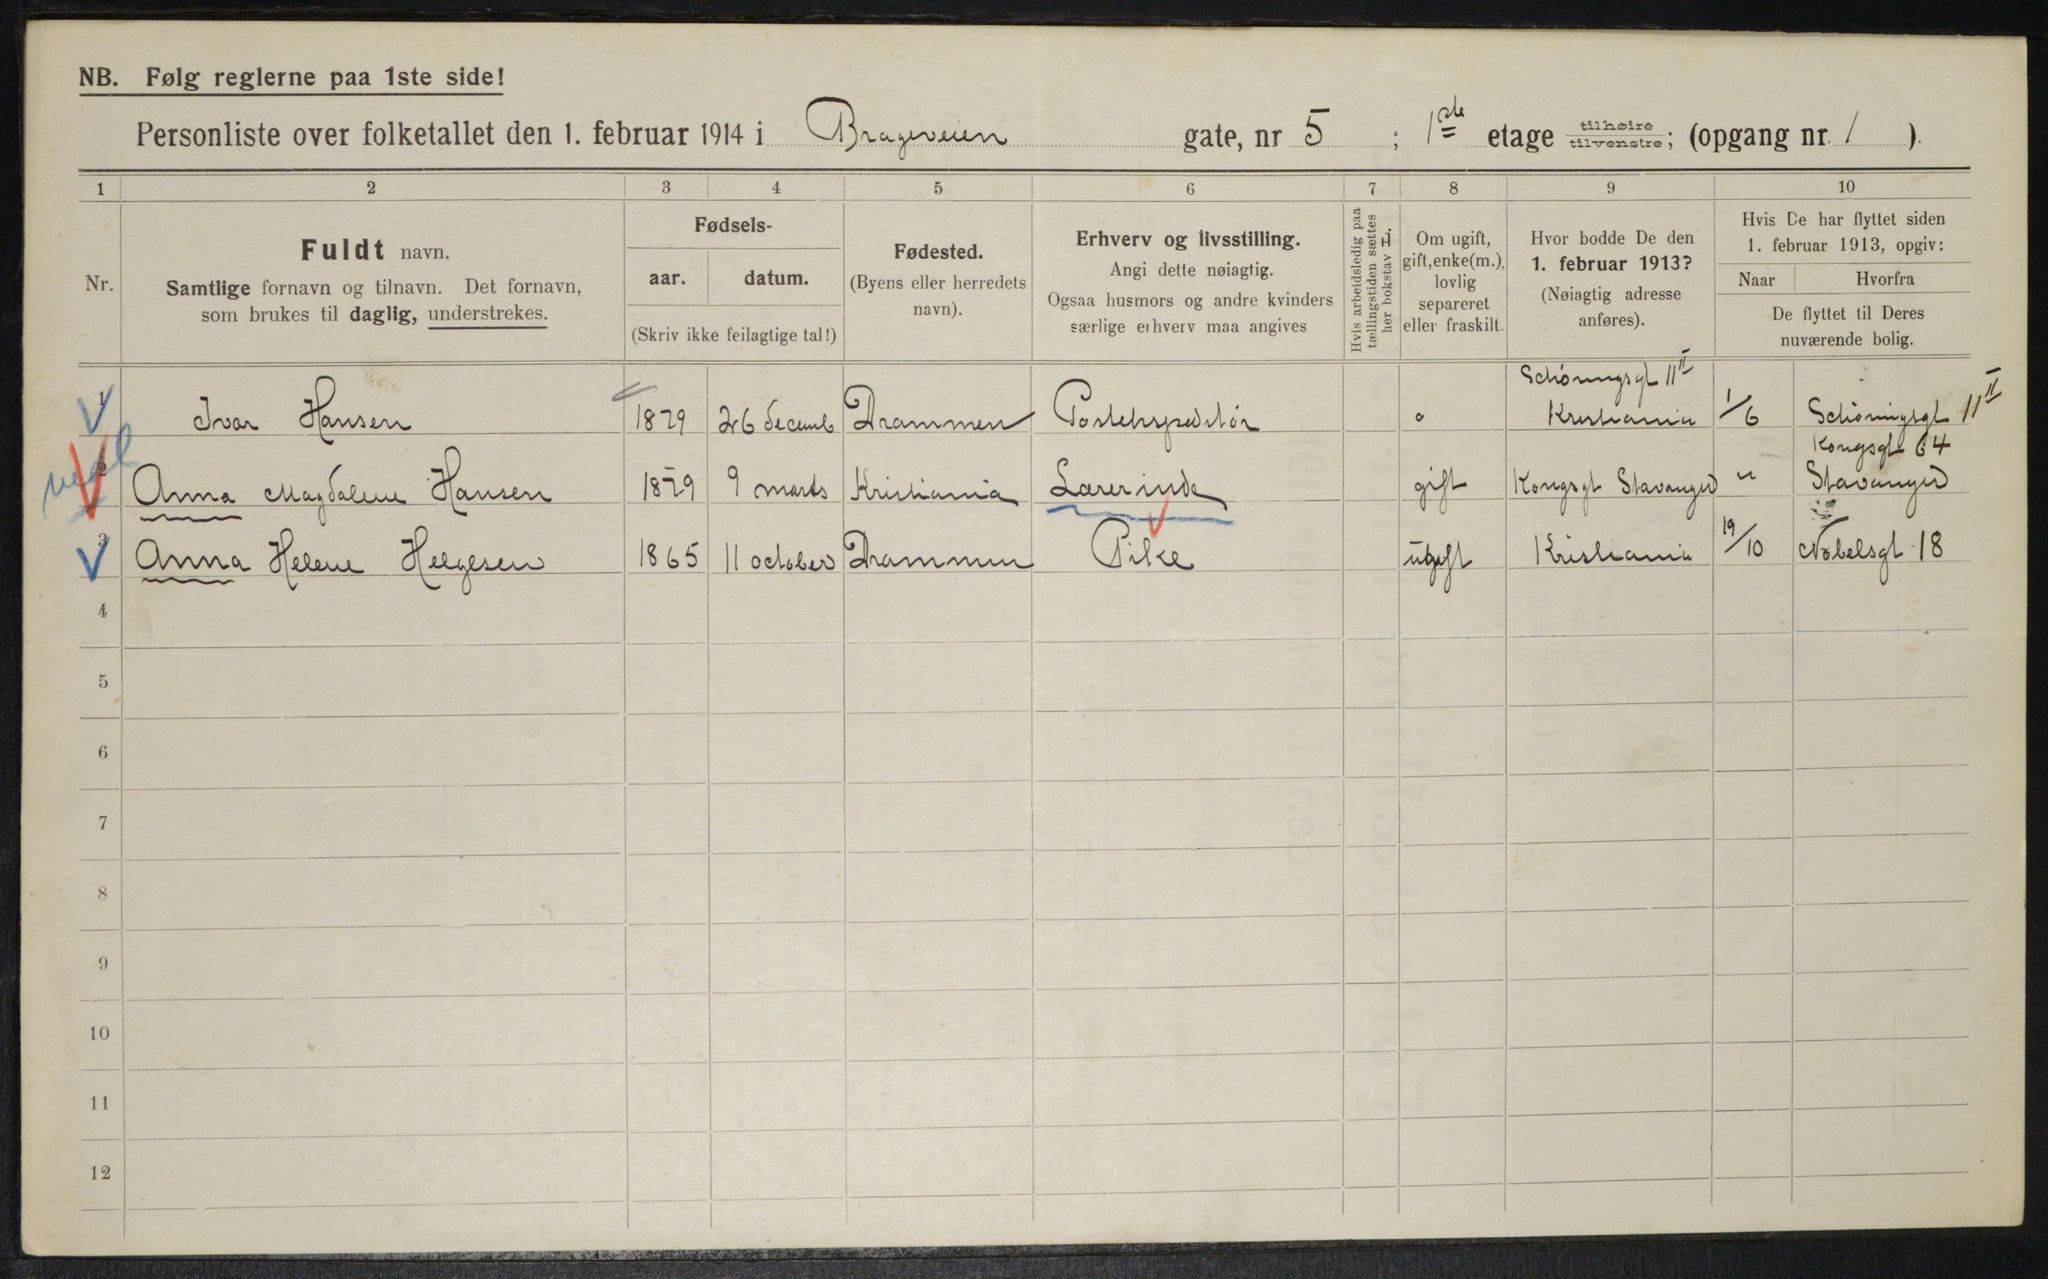 NB. Følg reglerne paa 1ste side!
Personliste over folketallet den 1. februar 1914 i Brageveien gate, nr 5 ; 1ste etage tilhøire tilvenstre; (opgang nr. 1 ).
1 2 3 4 5 6 7 8 9 10
Nr.
Fuldt navn.
Samtlige fornavn og tilnavn. Det fornavn,
som brukes til daglig, understrekes.
Fødsels-
aar. datum.
(Skriv ikke feilagtige tal!)
Fødested.
(Byens eller herredets
navn).
Erhverv og livsstilling.
Angi dette nøiagtig.
Ogsaa husmors og andre kvinders
særlige erhverv maa angives
Hvis arbeidsledig paa
tællingstiden sættes
her bokstav H.
Om ugift,
gift, enke(m.),
lovlig
separeret
eller fraskilt.
Hvor bodde De den
1. februar 1913?
(Nøiagtig adresse
anføres).
Hvis De har flyttet siden
1. februar 1913, opgiv:
Naar Hvorfra
De flyttet til Deres
nuværende bolig.
Schøningsgt 11 II
1 Ivar Hansen 1879 26 decemb Drammen Postekspeditør o Kristiania 1/6 Schøningsgt 11 II
Kongsgt 64
2 Anna Magdalene Hansen 1879 9 marts Kristiania Lærerinde gift Kongsgt Stavanger " Stavanger
3 Anna Helene Helgesen 1865 11 october Drammen Pike ugift Kristiania 19/10 Nobelsgt 18
4
5
6
7
8
9
10
11
12